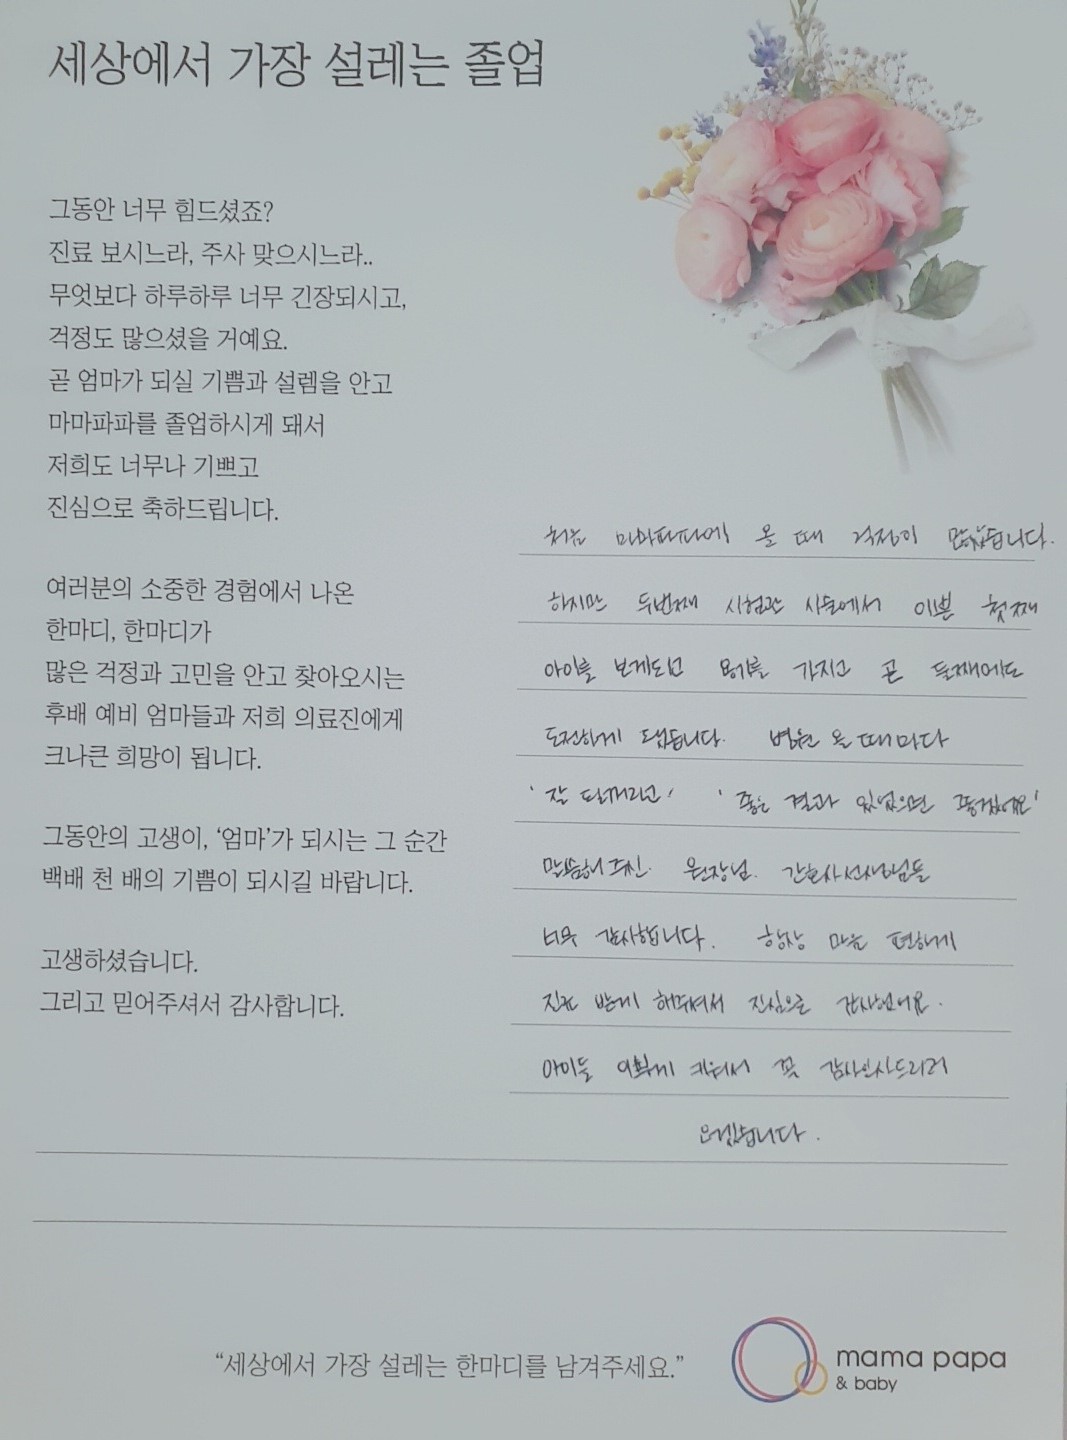 세상에서 가장 설레는 졸업
그동안 너무 힘드셨죠?
진료 보시느라, 주사 맞으시느라..
무엇보다 하루하루 너무 긴장되시고,
걱정도 많으셨을 거예요.
곧 엄마가 되실 기쁨과 설렘을 안고
마마파파를 졸업하시게 돼서
저희도 너무나 기쁘고
진심으로 축하드립니다.
여러분의 소중한 경험에서 나온
한마디, 한마디가
많은 걱정과 고민을 안고 찾아오시는
후배 예비 엄마들과 저희 의료진에게
크나큰 희망이 됩니다.
그동안의 고생이, ‘엄마’가 되시는 그 순간
백배 천 배의 기쁨이 되시길 바랍니다.
고생하셨습니다.
그리고 믿어주셔서 감사합니다.
처음 마마파파에 올 때 걱정이 많았습니다.
하지만 두번째 시험관 시술에서 이쁜 첫째
아이를 보게되고 용기를 가지고 곧 둘째에도
도전하게 됐습니다. 병원 올 때마다
'잘 될꺼라고' '좋은 결과 있었으면 좋겠어요'
말씀해주신. 원장님. 간호사선생님들
너무 감사합니다. 항상 마음 편하게
진료 받게 해주셔서 진심으로 감사했어요.
아이들 이쁘게 키워서 꼭 감사인사드리러
오겠습니다.
“세상에서 가장 설레는 한마디를 남겨주세요.”
mama papa
& baby